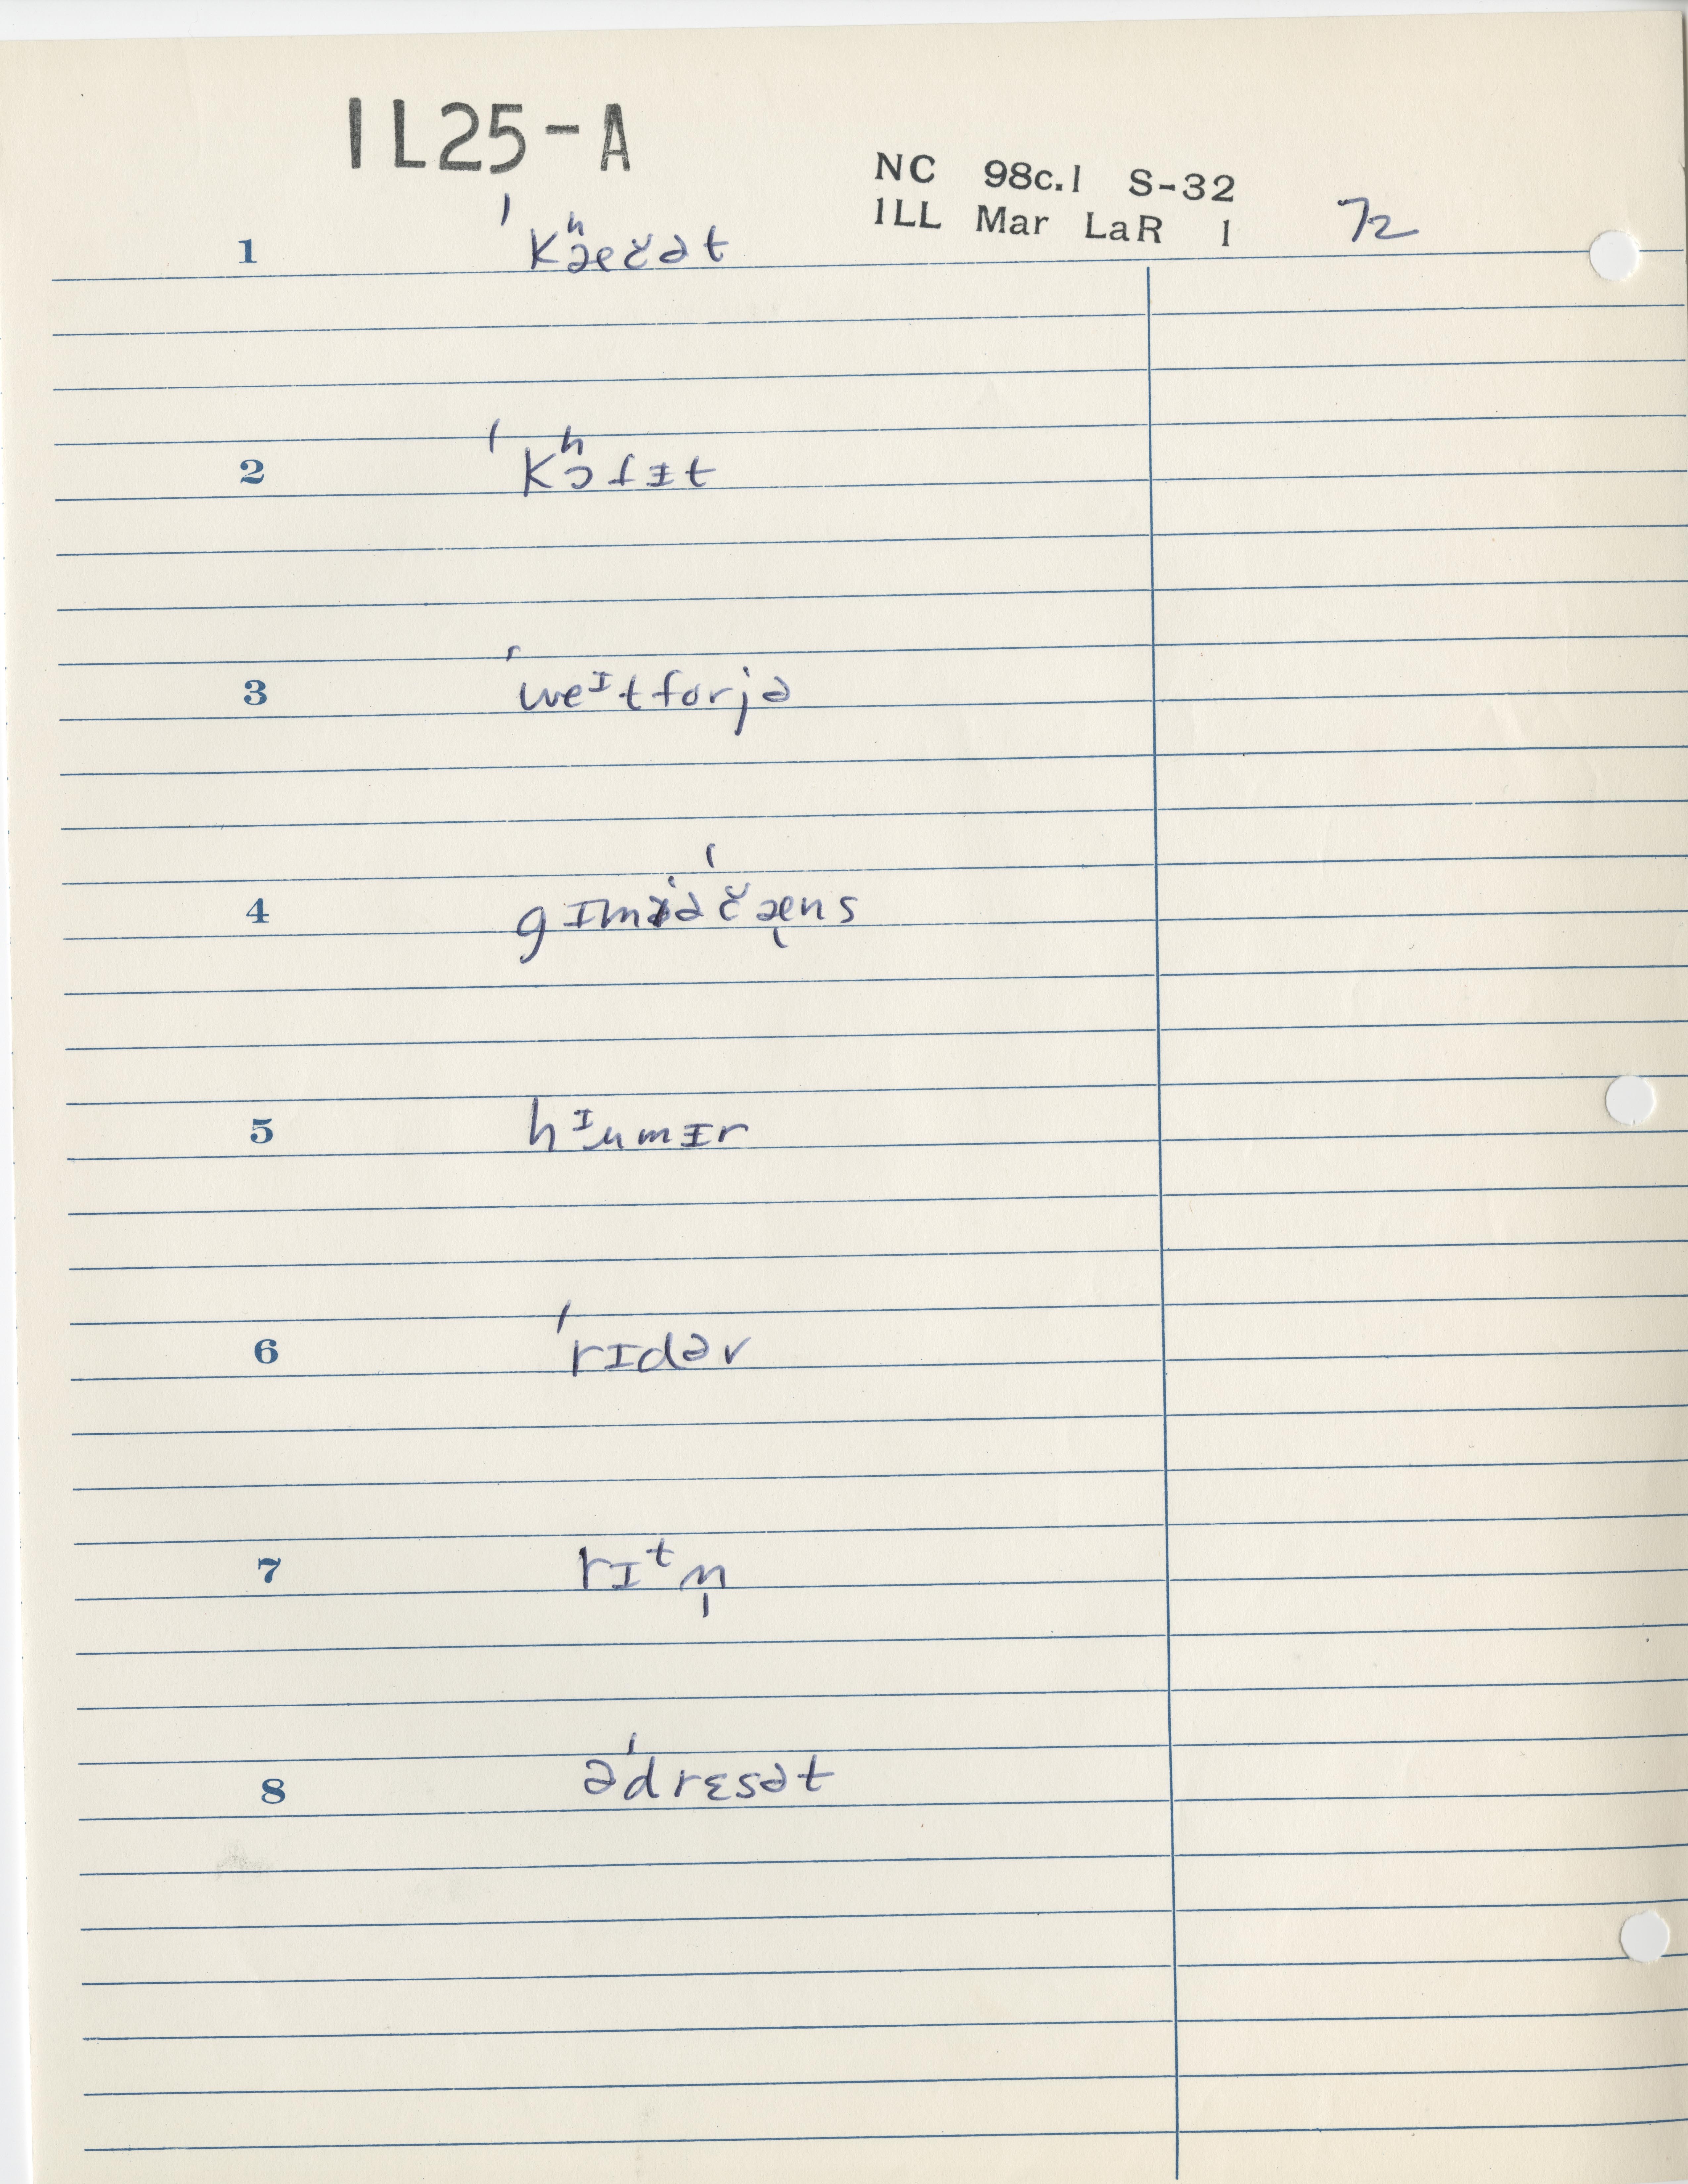 IL25-A
NC 98c.1 S-32
ILL Mar LaR 1 72
1 ˈkʰæčət
2 ˈkʰɔfɪt
3 ˈweᴵtforjə
4 gɪmiəˈčæns
5 hᴵumɨr
6 ˈrɪdəv
7 rɪᵗn̩
8 əˈdrɛsət